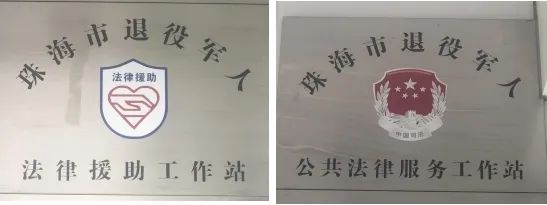 珠海市退役军人
法律援助
法律援助工作站
珠海市退役军人
中国司法
公共法律服务工作站